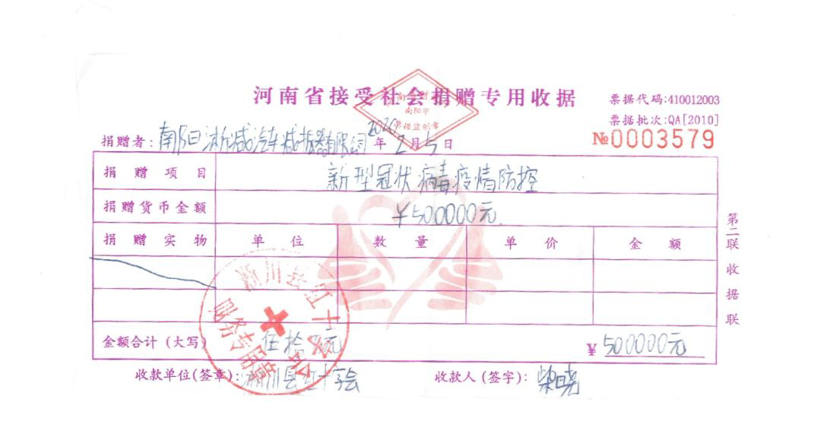 河南省接受社会捐赠专用收据
票据代码:410012003
票据批次:QA[2010]
№0003579
捐赠者: 南阳淅减汽车减振器有限公司 2020年2月5日
捐赠项目 新型冠状病毒疫情防控
捐赠货币金额 ¥500000元
捐赠实物 单位 数量 单价 金额
金额合计(大写) 伍拾万元 ¥500000元
收款单位(签章): 淅川县红十字会 收款人(签字):
第二联收据联
淅川县红十字会
财务专用章